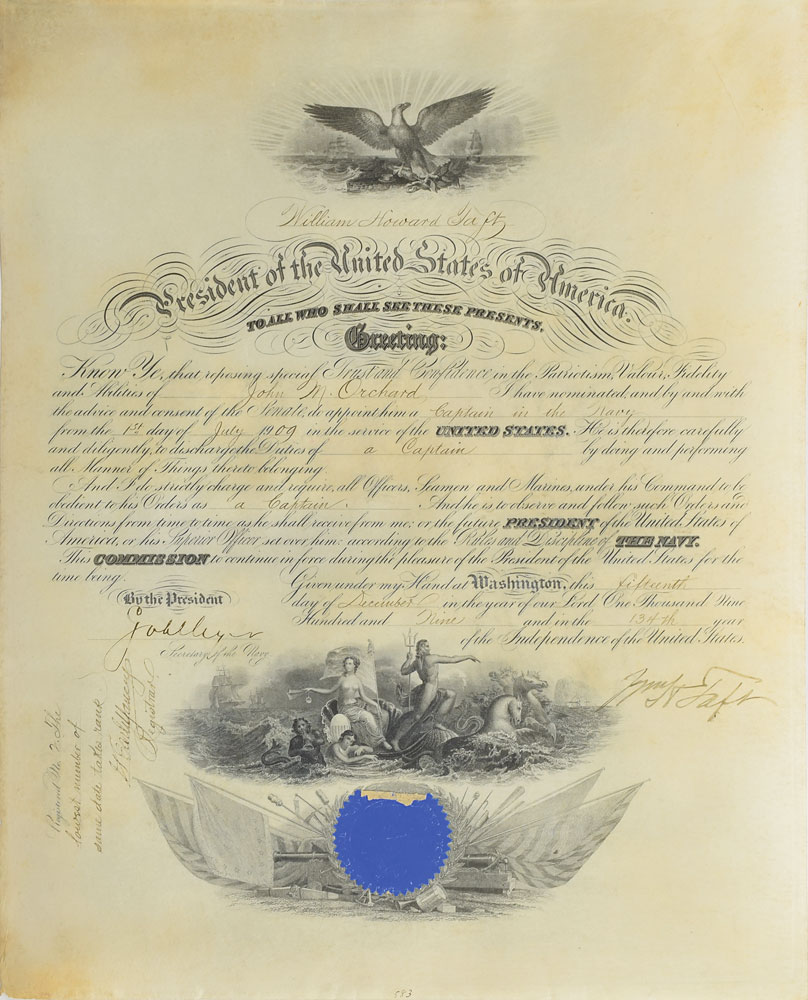 William Howard Taft,
President of the United States of America.
TO ALL WHO SHALL SEE THESE PRESENTS,
Greeting:
Know Ye, that reposing special Trust and Confidence in the Patriotism, Valour, Fidelity
and Abilities of John M. Orchard I have nominated, and by and with
the advice and consent of the Senate, do appoint him a Captain in the Navy
from the 1st day of July 1909 in the service of the UNITED STATES. He is therefore carefully
and diligently, to discharge the Duties of a Captain by doing and performing
all Manner of Things thereto belonging.
And I do strictly charge and require, all Officers, Seamen and Marines, under his Command to be
obedient to his Orders as a Captain. And he is to observe and follow such Orders and
Directions from time to time as he shall receive from me, or the future PRESIDENT of the United States of
America, or his Superior Officer set over him, according to the Rules and Discipline of THE NAVY.
This COMMISSION to continue in force during the pleasure of the President of the United States for the
time being.
Given under my Hand at Washington, this fifteenth
By the President
day of December in the year of our Lord, One Thousand Nine
Hundred and Nine and in the 134th year
of the Independence of the United States.
Secretary of the Navy.
Wm H Taft
Registered No. 2. The
lowest number of
same date takes rank
Registrar
583